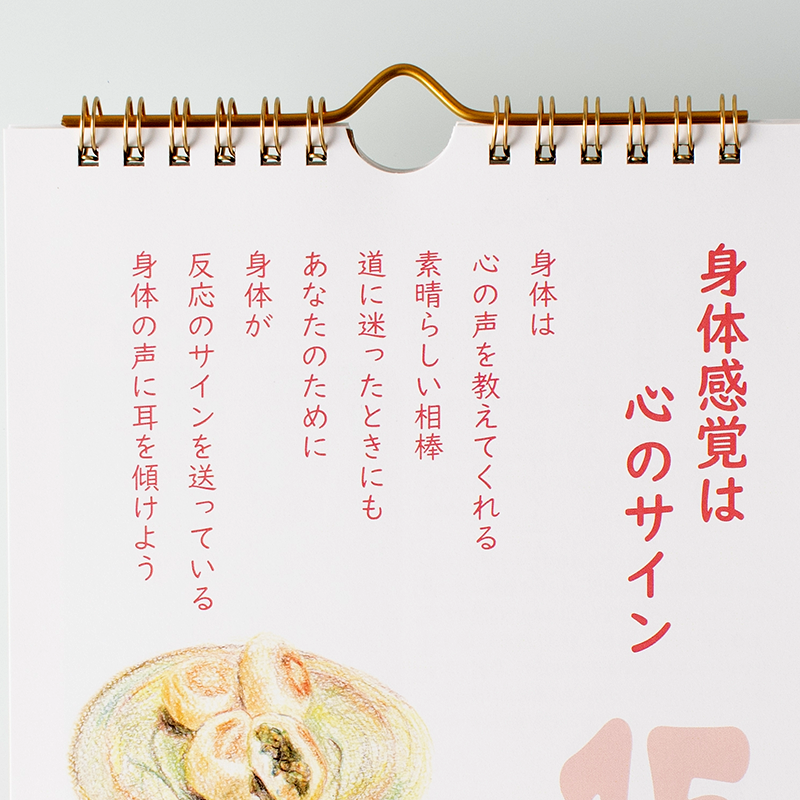 身体感覚は
心のサイン
身体は
心の声を教えてくれる
素晴らしい相棒
道に迷ったときにも
あなたのために
身体が
反応のサインを送っている
身体の声に耳を傾けよう
15